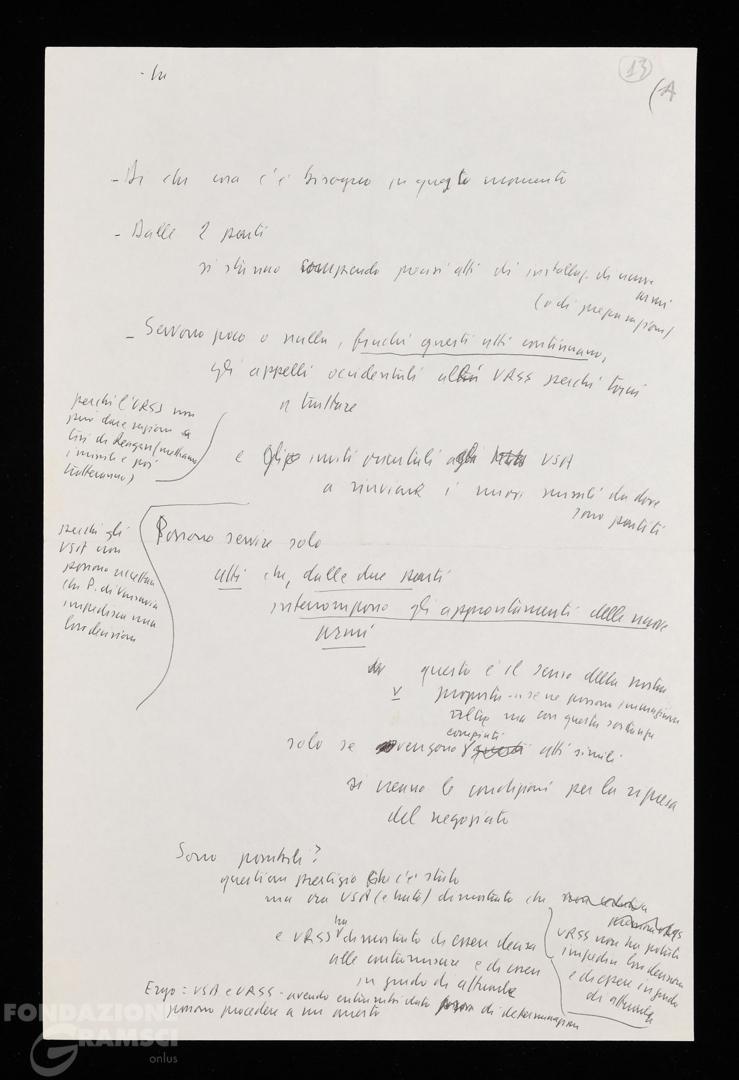 - In
13
(A
- Di che cosa c'è bisogno in questo momento
- Dalle 2 parti
si stanno compiendo passi atti di installaz. di nuove
armi
(o di preparazione)
- Servono poco o nulla, finché questi atti continuano,
gli appelli occidentali all' URSS perché torni
a trattare
perché l'URSS non
può dare ragione a
tesi di Reagan (mettiamo
i missili e poi
tratteranno)
e gli inviti orientali agli USA
a rinviare i nuovi missili da dove
sono partiti
perché gli
USA non
possono accettare
che P. di Varsavia
impedisca una
loro decisione
Possono servire solo
atti che, dalle due parti
interrompono gli approntamenti delle nuove
armi
questo è il senso della nostra
proposta - se ne possono immaginare
altre ma con questa sostanza
solo se vengono compiuti atti simili
si creano le condizioni per la ripresa
del negoziato
Sono possibili?
questione prestigio c'è stata
ma ora USA (e Nato) dimostrato che
URSS non ha potuto
impedire loro decisione
e di essere in grado
di attuarla
e URSS ha dimostrato di essere decisa
alle contromisure e di essere
in grado di attuarle
Ergo: USA e URSS - avendo entrambi dato prova di determinazione
possono procedere a un arresto
FONDAZIONE
GRAMSCI
onlus